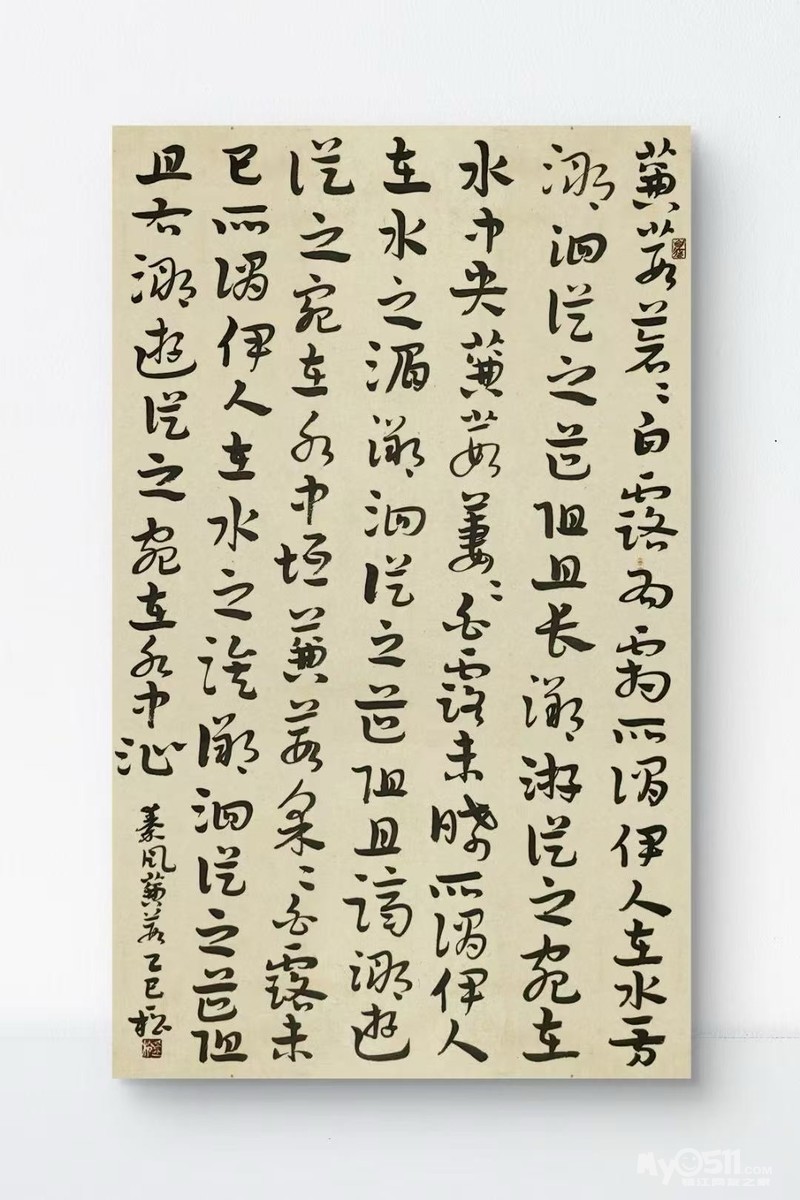 蒹葭蒼〻白露為霜所謂伊人在水一方
溯洄從之道阻且長溯游從之宛在
水中央蒹葭萋〻白露未晞所謂伊人
在水之湄溯洄從之道阻且躋溯遊
從之宛在水中坻蒹葭采〻白露未
已所謂伊人在水之涘溯洄從之道阻
且右溯遊從之宛在水中沚
秦風蒹葭乙巳松
My0511.COM